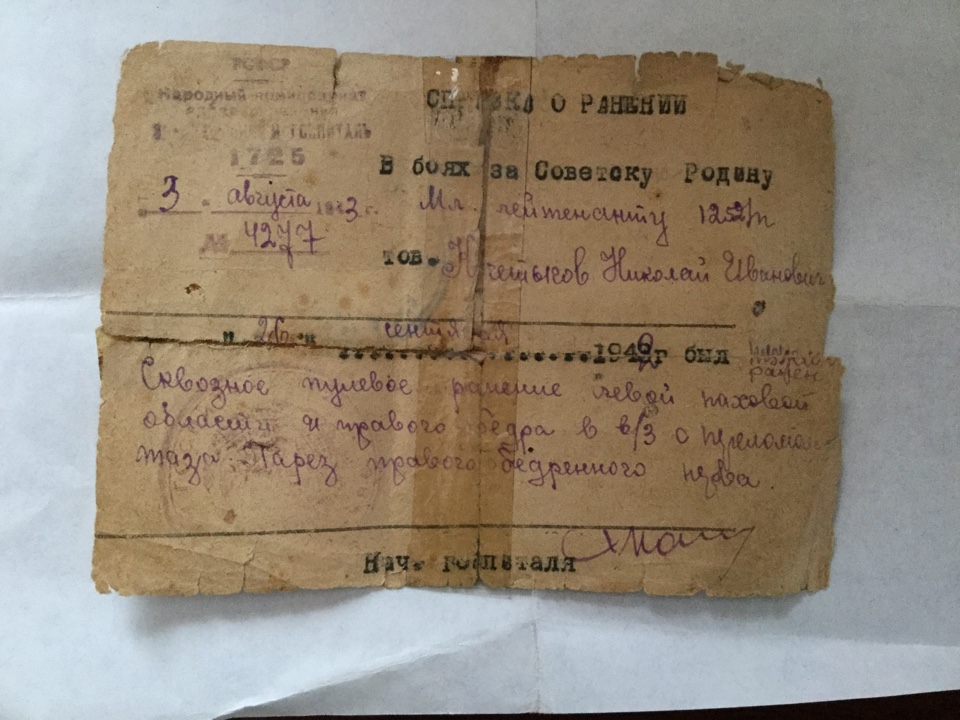 РСФСР
Народный комиссариат
И ГОСПИТАЛЬ
1725
3 августа 1943 г.
№ 4277
СПРАВКА О РАНЕНИИ
В боях за Советску Родину
Мл. лейтенанту
тов. Николай Иванович
" 26 " сентября 194 г был
ранен
Сквозное пулевое ранение левой паховой
области и правого бедра в в/3 с переломом
таза Парез правого бедренного нерва.
Нач. госпиталя